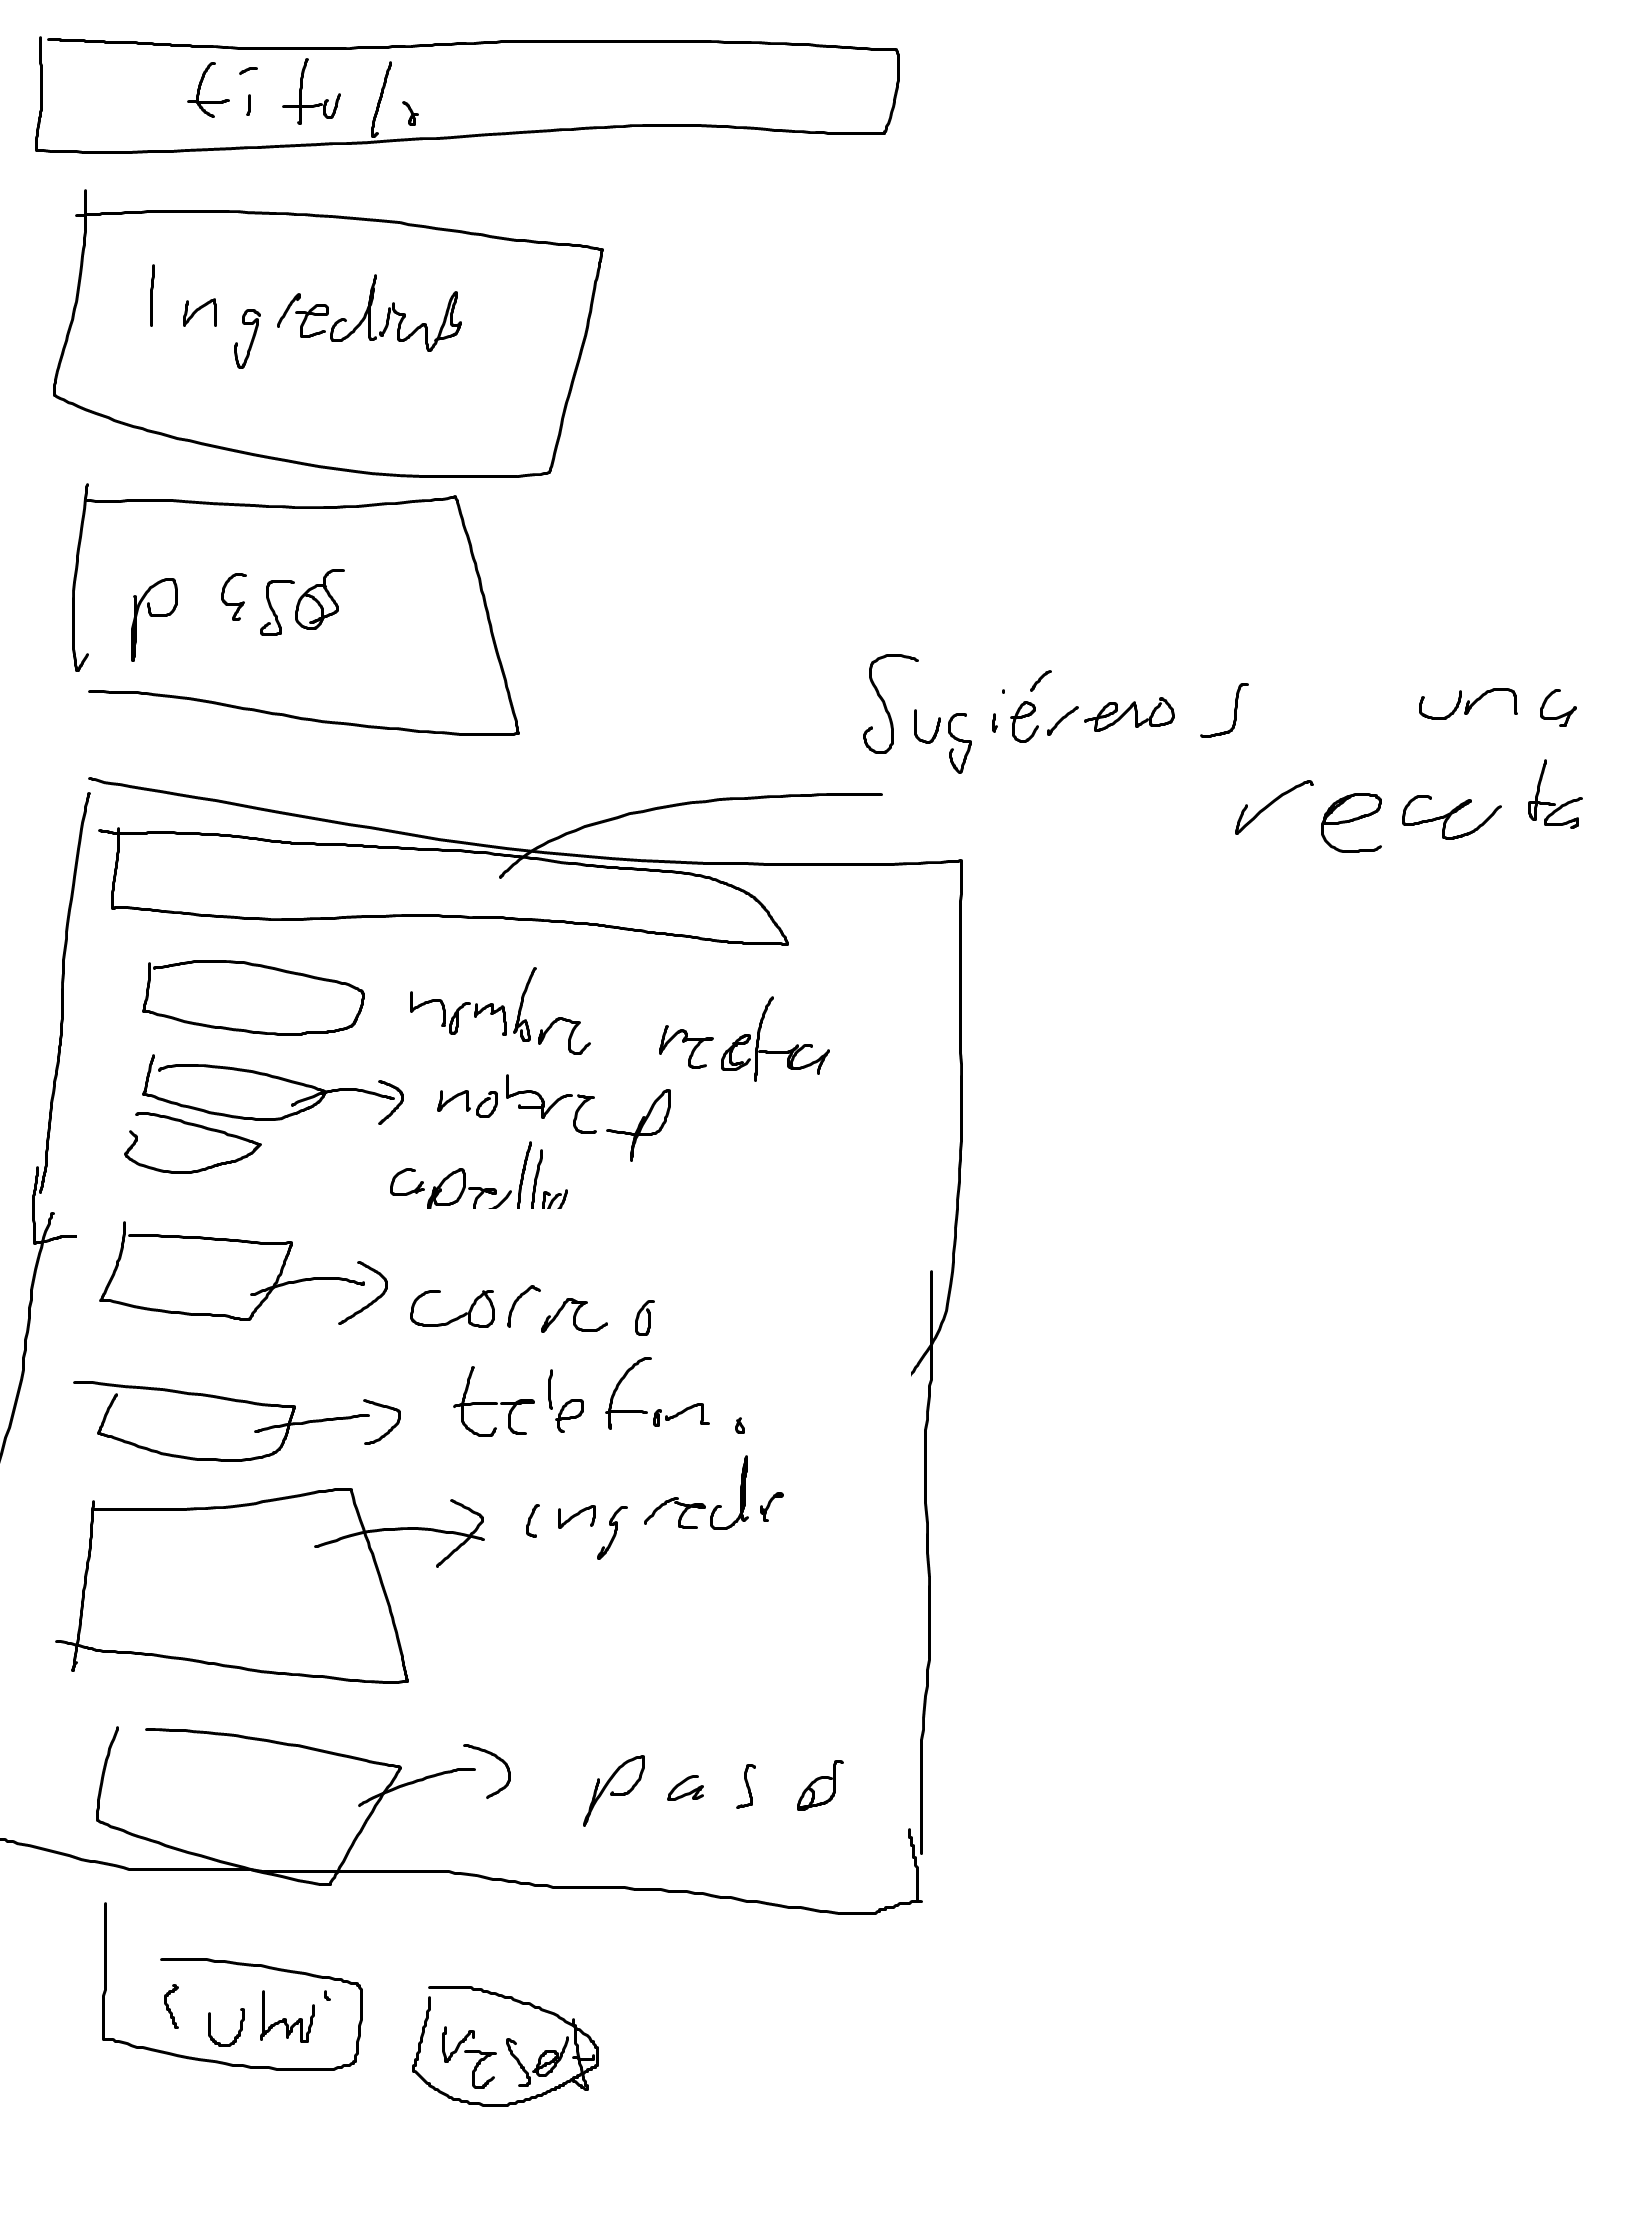 título
Ingredients
pasos
Sugiérenos una
receta
nombre receta
nobre p
apellio
correo
telefono
ingredi
pasos
submi
reset